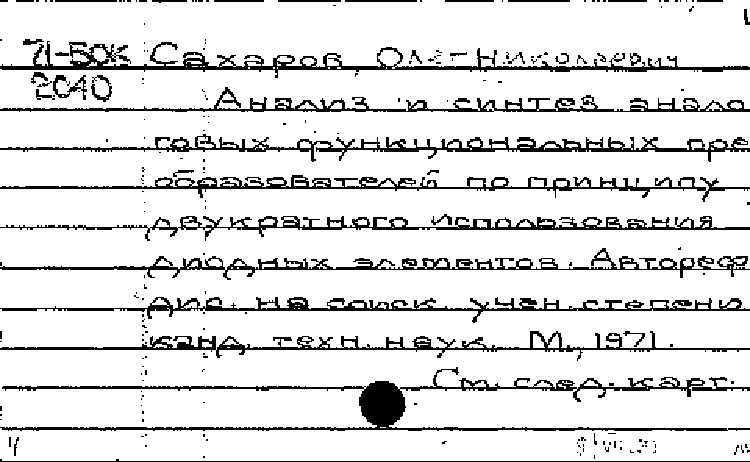 71-БОК Сахаров, Олег Николаевич
2040 Анализ и синтез анало
говых функциональных пре
образователей по принципу
двукратного использования
диодных элементов. Автореф
дис. на соиск. учен. степени
канд. техн. наук. М., 1971.
См. след. карт.